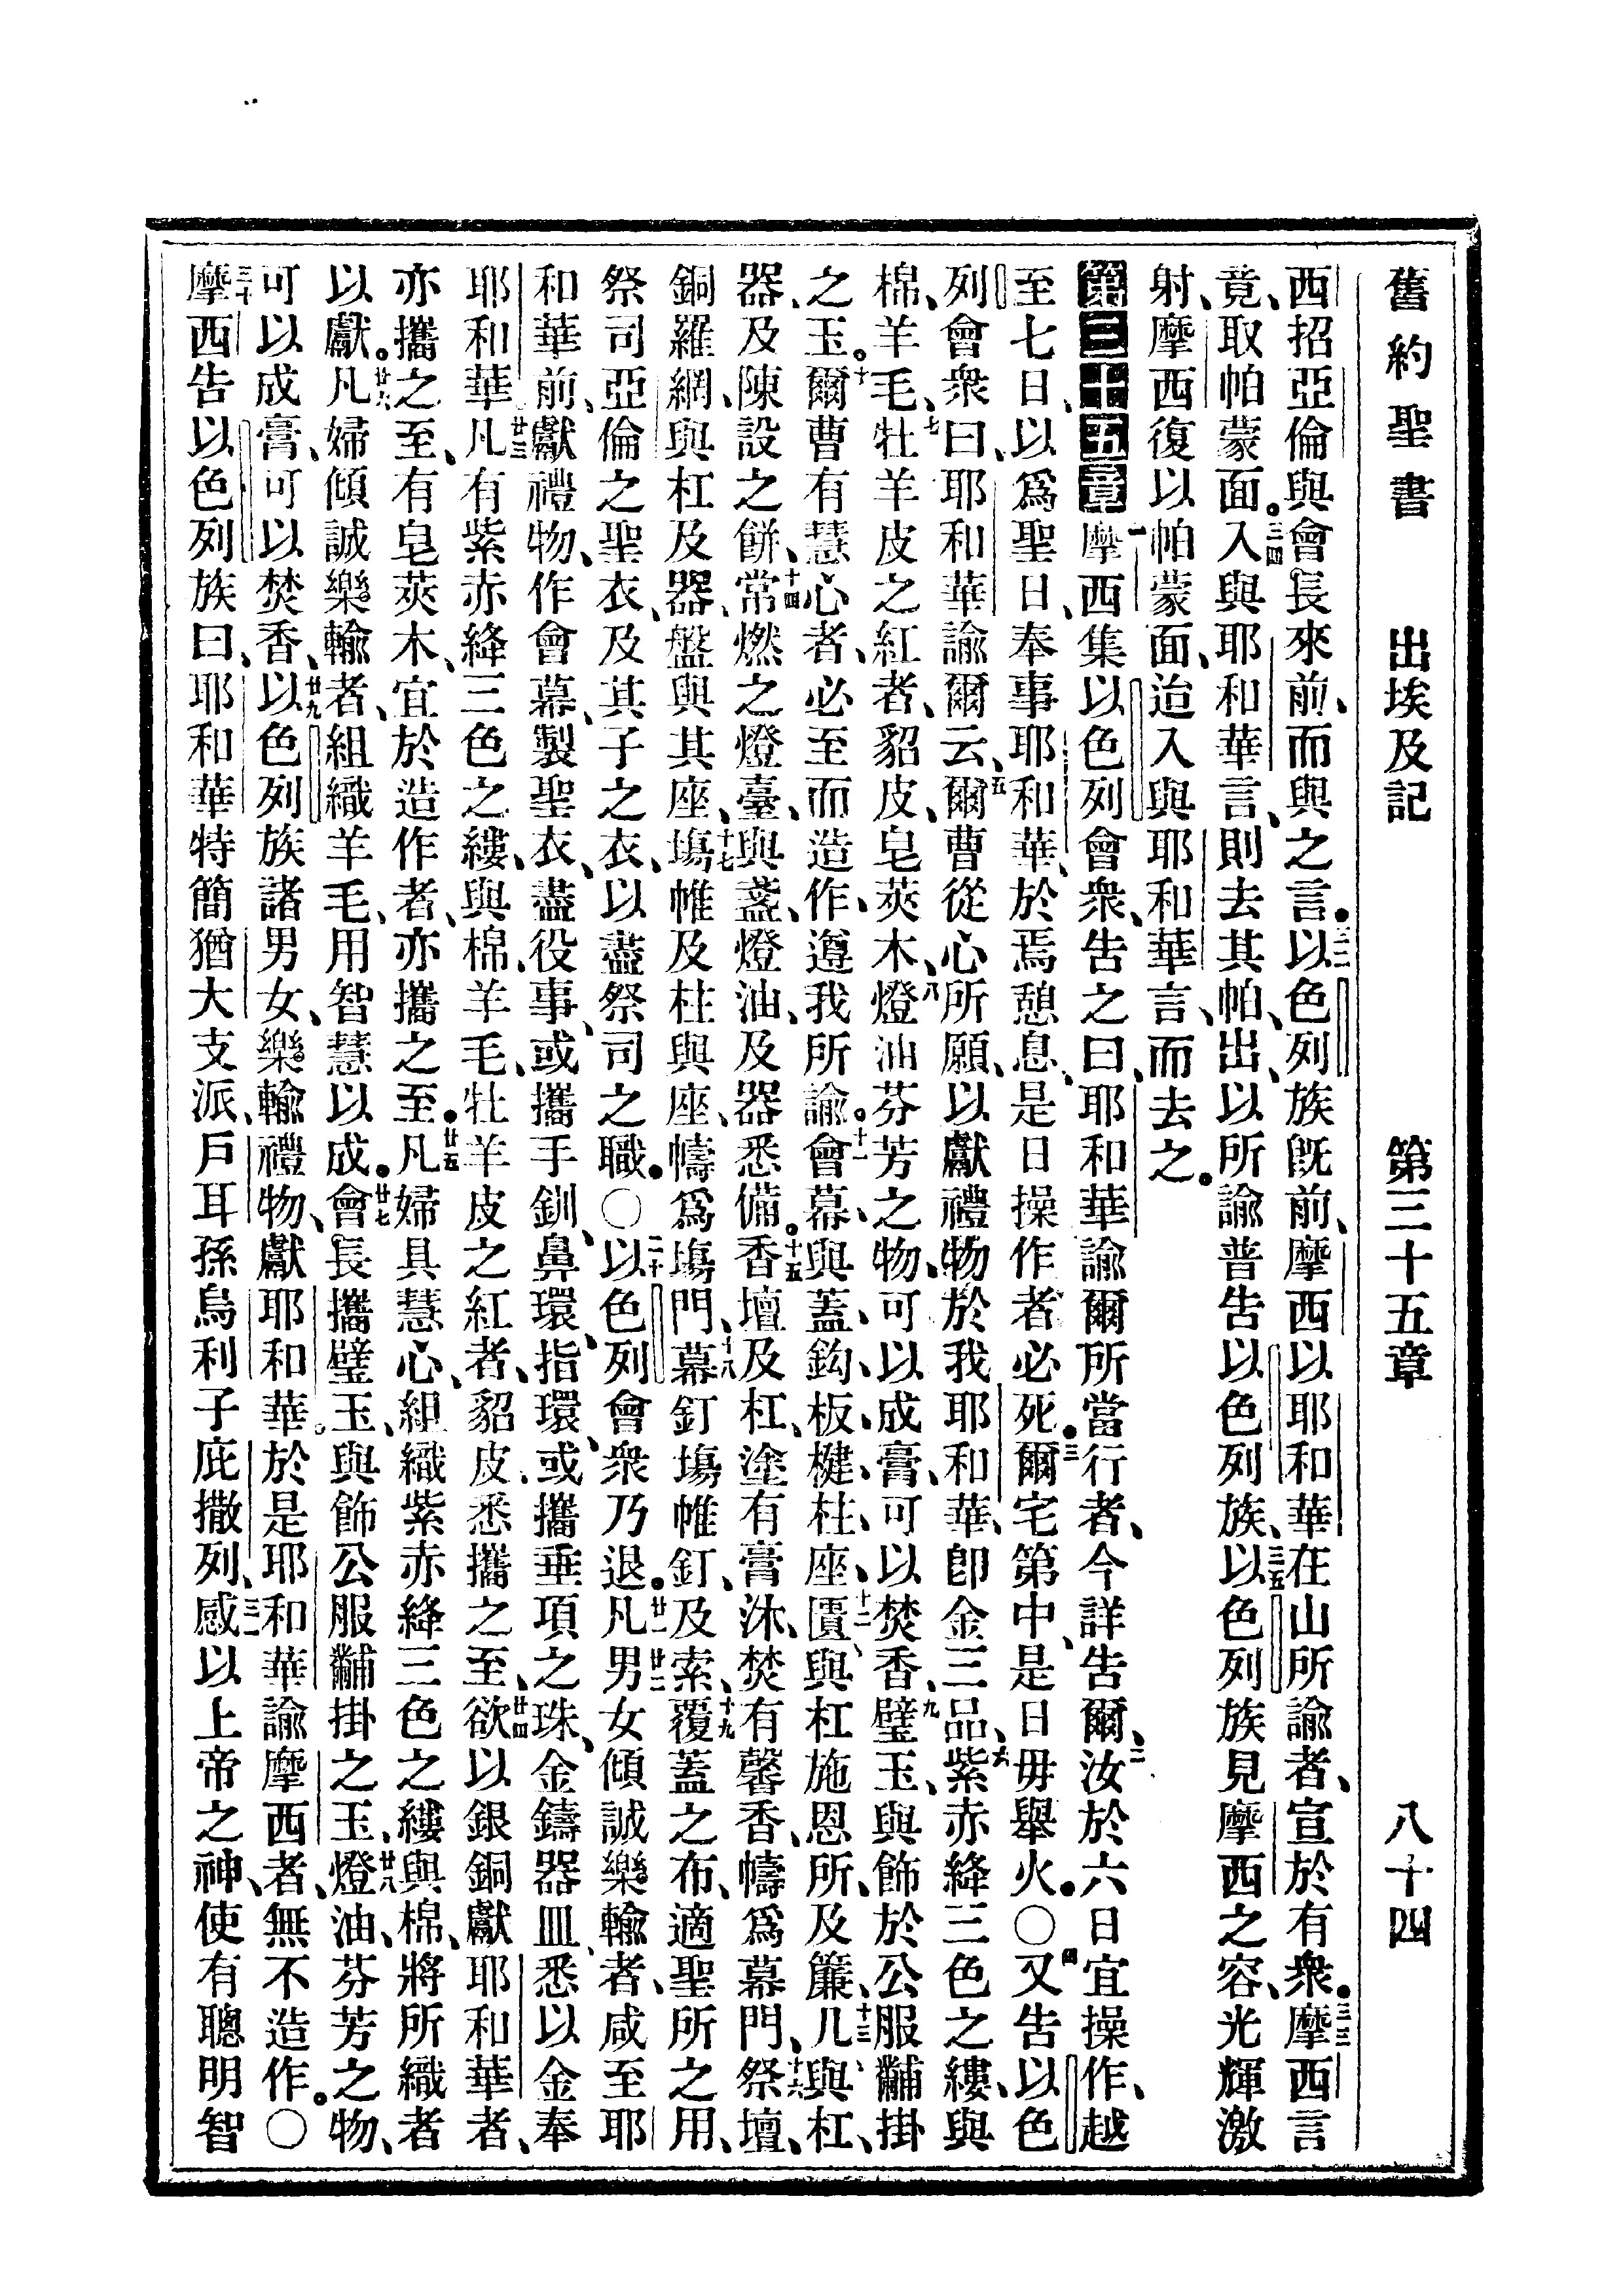 舊約聖書 出埃及記 第三十五章 八十四
西招亞倫與會長來前、而與之言。三二以色列族旣前、摩西以耶和華在山所諭者、宣於有衆。三三摩西言
竟、取帕蒙面。三四入與耶和華言、則去其帕、出、以所諭普告以色列族、三五以色列族見摩西之容、光輝激
射、摩西復以帕蒙面、迨入與耶和華言、而去之。
第三十五章 一摩西集以色列會衆、告之曰、耶和華諭爾所當行者、今詳告爾、二汝於六日宜操作、越
至七日、以爲聖日、奉事耶和華、於焉憩息、是日操作者必死。三爾宅第中、是日毋舉火。〇四又告以色
列會衆曰、耶和華諭爾云、五爾曹從心所願、以獻禮物於我耶和華、卽金三品、六紫赤絳三色之縷、與
棉、羊毛、七牡羊皮之紅者、貂皮、皂莢木、八燈油芬芳之物、可以成膏、可以焚香、九璧玉、與飾於公服黼掛
之玉。十爾曹有慧心者、必至而造作、遵我所諭。十一會幕、與蓋、鈎、板、楗、柱、座、十二匱、與杠施恩所、及簾、十三几、與杠、
器、及陳設之餅、十四常燃之燈臺、與盞、燈油、及器悉備。十五香壇及杠、塗有膏沐、焚有馨香、幬爲幕門、十六祭壇、
銅羅網、與杠及器、盤與其座、十七塲帷及柱與座、幬爲塲門、十八幕釘塲帷釘、及索、十九覆蓋之布、適聖所之用、
祭司亞倫之聖衣、及其子之衣、以盡祭司之職。〇二十以色列會衆乃退。廿一凡廿二男女傾誠樂輸者、咸至耶
和華前、獻禮物、作會幕、製聖衣、盡役事、或攜手釧、鼻環、指環、或攜垂項之珠、金鑄器皿、悉以金奉
耶和華、廿三凡有紫赤絳三色之縷、與棉、羊毛、牡羊皮之紅者、貂皮、悉攜之至、廿四欲以銀銅獻耶和華者、
亦攜之至、有皂莢木、宜於造作者、亦攜之至。廿五凡婦具慧心、組織紫赤絳三色之縷、與棉、將所織者
以獻。廿六凡婦傾誠樂輸者、組織羊毛、用智慧以成。廿七會長攜璧玉、與飾公服黼掛之玉、廿八燈油、芬芳之物、
可以成膏、可以焚香、廿九以色列族諸男女、樂輸禮物、獻耶和華。於是耶和華諭摩西者、無不造作。〇
三十摩西告以色列族曰、耶和華特簡猶大支派、戶耳孫烏利子庇撒列、三一感以上帝之神、使有聰明智